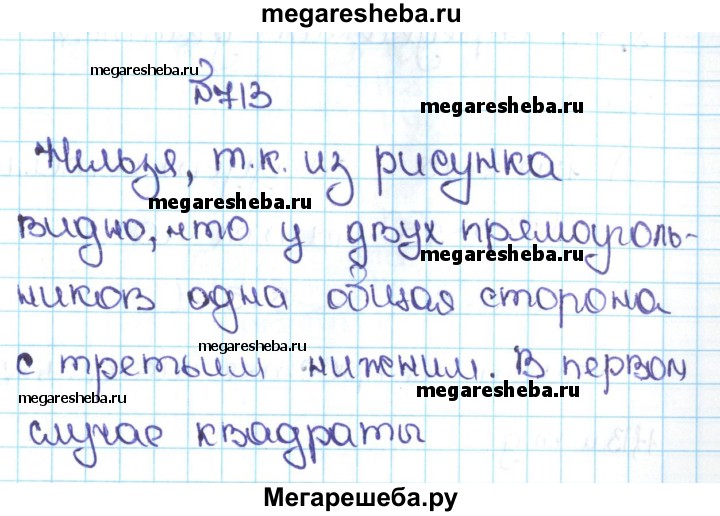 megaresheba.ru
megaresheba.ru
№713
megaresheba.ru
Нельзя, т.к. из рисунка
megaresheba.ru
видно, что у двух прямоуголь-
megaresheba.ru
ников одна общая сторона
megaresheba.ru
с третьим нижним. В первом
megaresheba.ru
megaresheba.ru
случае квадраты
Мегарешеба.ру